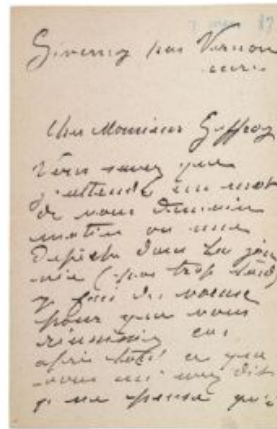 7 mars 87
Giverny par Vernon
eure
Cher Monsieur Geffroy
Vous savez que
j'attends un mot
de vous demain
matin ou une
dépêche dans la jour
née (pas trop tard)
je fais des voeux
pour que vous
réussissiez car
après tout ce que
vous m'avez dit
je ne pense qu'à